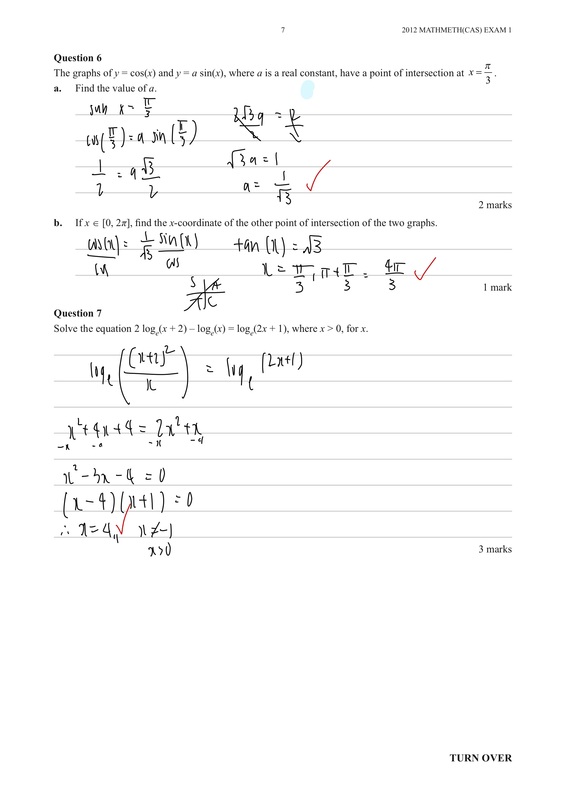 7
2012 MATHMETH(CAS) EXAM 1
Question 6
The graphs of y = cos(x) and y = a sin(x), where a is a real constant, have a point of intersection at x = π/3 .
a. Find the value of a.
sub x = π/3
cos(π/3) = a sin(π/3)
1/2 = a √3/2
2√3a/2 = 2/2
√3 a = 1
a = 1/√3 ✓
2 marks
b. If x ∈ [0, 2π], find the x-coordinate of the other point of intersection of the two graphs.
cos(x)/cos = 1/√3 sin(x)/cos
tan(x) = √3
x = π/3, π + π/3 = 4π/3 ✓
S A
T C
1 mark
Question 7
Solve the equation 2 logₑ(x + 2) – logₑ(x) = logₑ(2x + 1), where x > 0, for x.
logₑ((x+2)²/x) = logₑ(2x+1)
x² + 4x + 4 = 2x² + x
x² - 3x - 4 = 0
(x - 4)(x + 1) = 0
∴ x = 4,, ✓ x ≠ -1
x>0
3 marks
TURN OVER